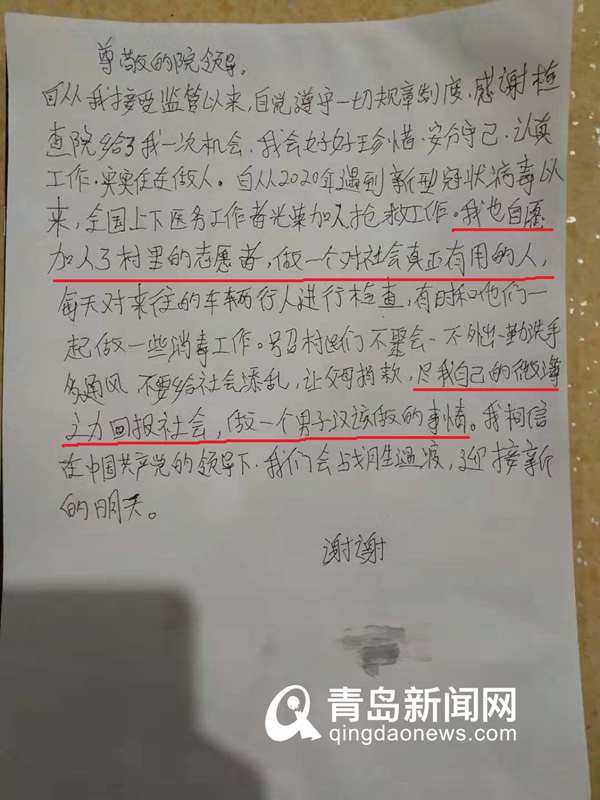 尊敬的院领导。
自从我接受监管以来,自觉遵守一切规章制度,感谢检
查院给了我一次机会,我会好好珍惜,安分守己,认真
工作,实实在在做人。自从2020年遇到新型冠状病毒以
来,全国上下医务工作者光荣加入抢救工作。我也自愿
加入了村里的志愿者,做一个对社会真正有用的人,
每天对来往的车辆行人进行检查,有时和他们一
起做一些消毒工作。号召村民们不聚会、不外出、勤洗手
多通风,不要给社会添乱,让父母捐款,尽我自己的微薄
之力回报社会,做一个男子汉该做的事情。我相信
在中国共产党的领导下,我们会战胜温疫,迎接新
的明天。
谢谢
青岛新闻网
qingdaonews.com